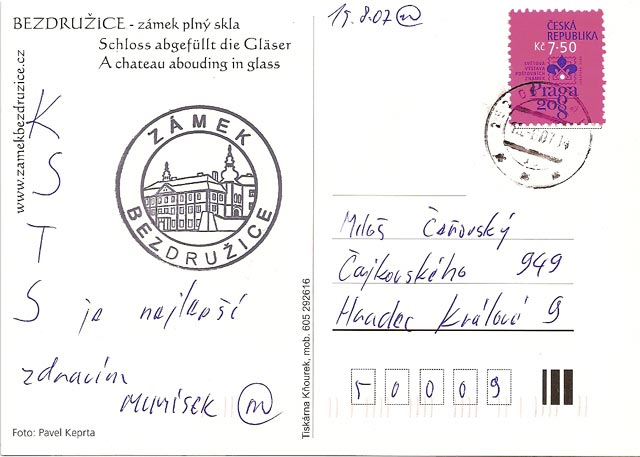 BEZDRUŽICE - zámek plný skla
Schloss abgefüllt die Gläser
A chateau abouding in glass
www.zamekbezdruzice.cz
ZÁMEK
BEZDRUŽICE
K
S
T
S je nejlepší
zdravím
Foto: Pavel Keprta
Tiskárna Kňourek, mob. 605 292616
19.8.07 m
ČESKÁ
REPUBLIKA
Kč 7·50
SVĚTOVÁ
VÝSTAVA
POŠTOVNÍCH
ZNÁMEK
Praga
2008
Miloš
Čajkovského 949
Hradec Králové 9
5 0 0 0 9